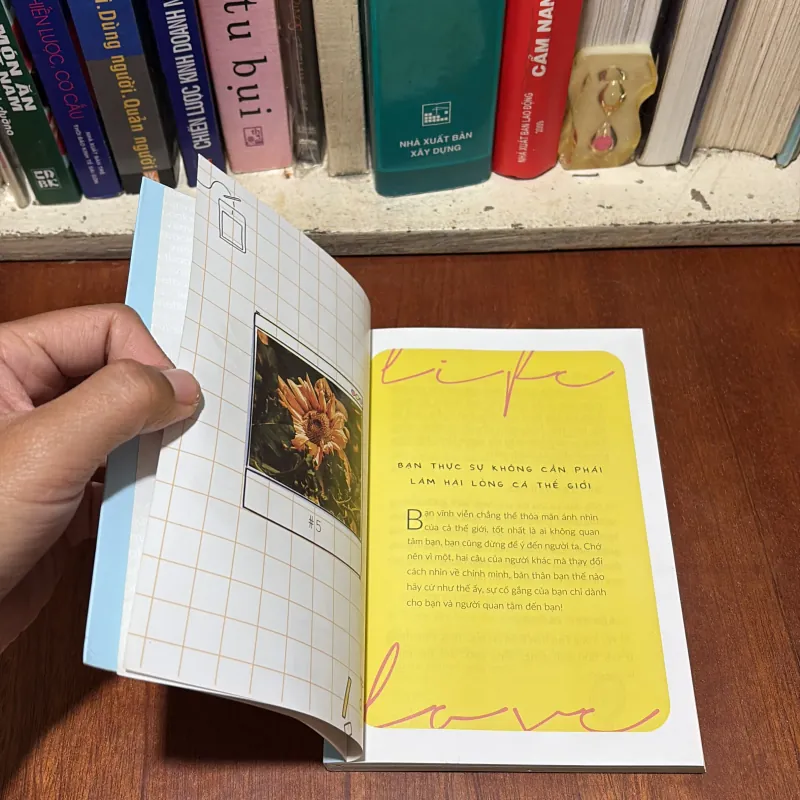 MÓN ĂN
CHIẾN LƯỢC, CƠ CẤU
Dùng người, Quản người
CHIẾN LƯỢC KINH DOANH
tu bụi
NHÀ XUẤT BẢN
XÂY DỰNG
CẨM NANG
NHÀ XUẤT BẢN LAO ĐỘNG
2005
#5
life
BẠN THỰC SỰ KHÔNG CẦN PHẢI
LÀM HÀI LÒNG CẢ THẾ GIỚI
Bạn vĩnh viễn chẳng thể thỏa mãn ánh nhìn
của cả thế giới, tốt nhất là ai không quan
tâm bạn, bạn cũng đừng để ý đến người ta. Chớ
nên vì một, hai câu của người khác mà thay đổi
cách nhìn về chính mình, bản thân bạn thế nào
hãy cứ như thế ấy, sự cố gắng của bạn chỉ dành
cho bạn và người quan tâm đến bạn!
love